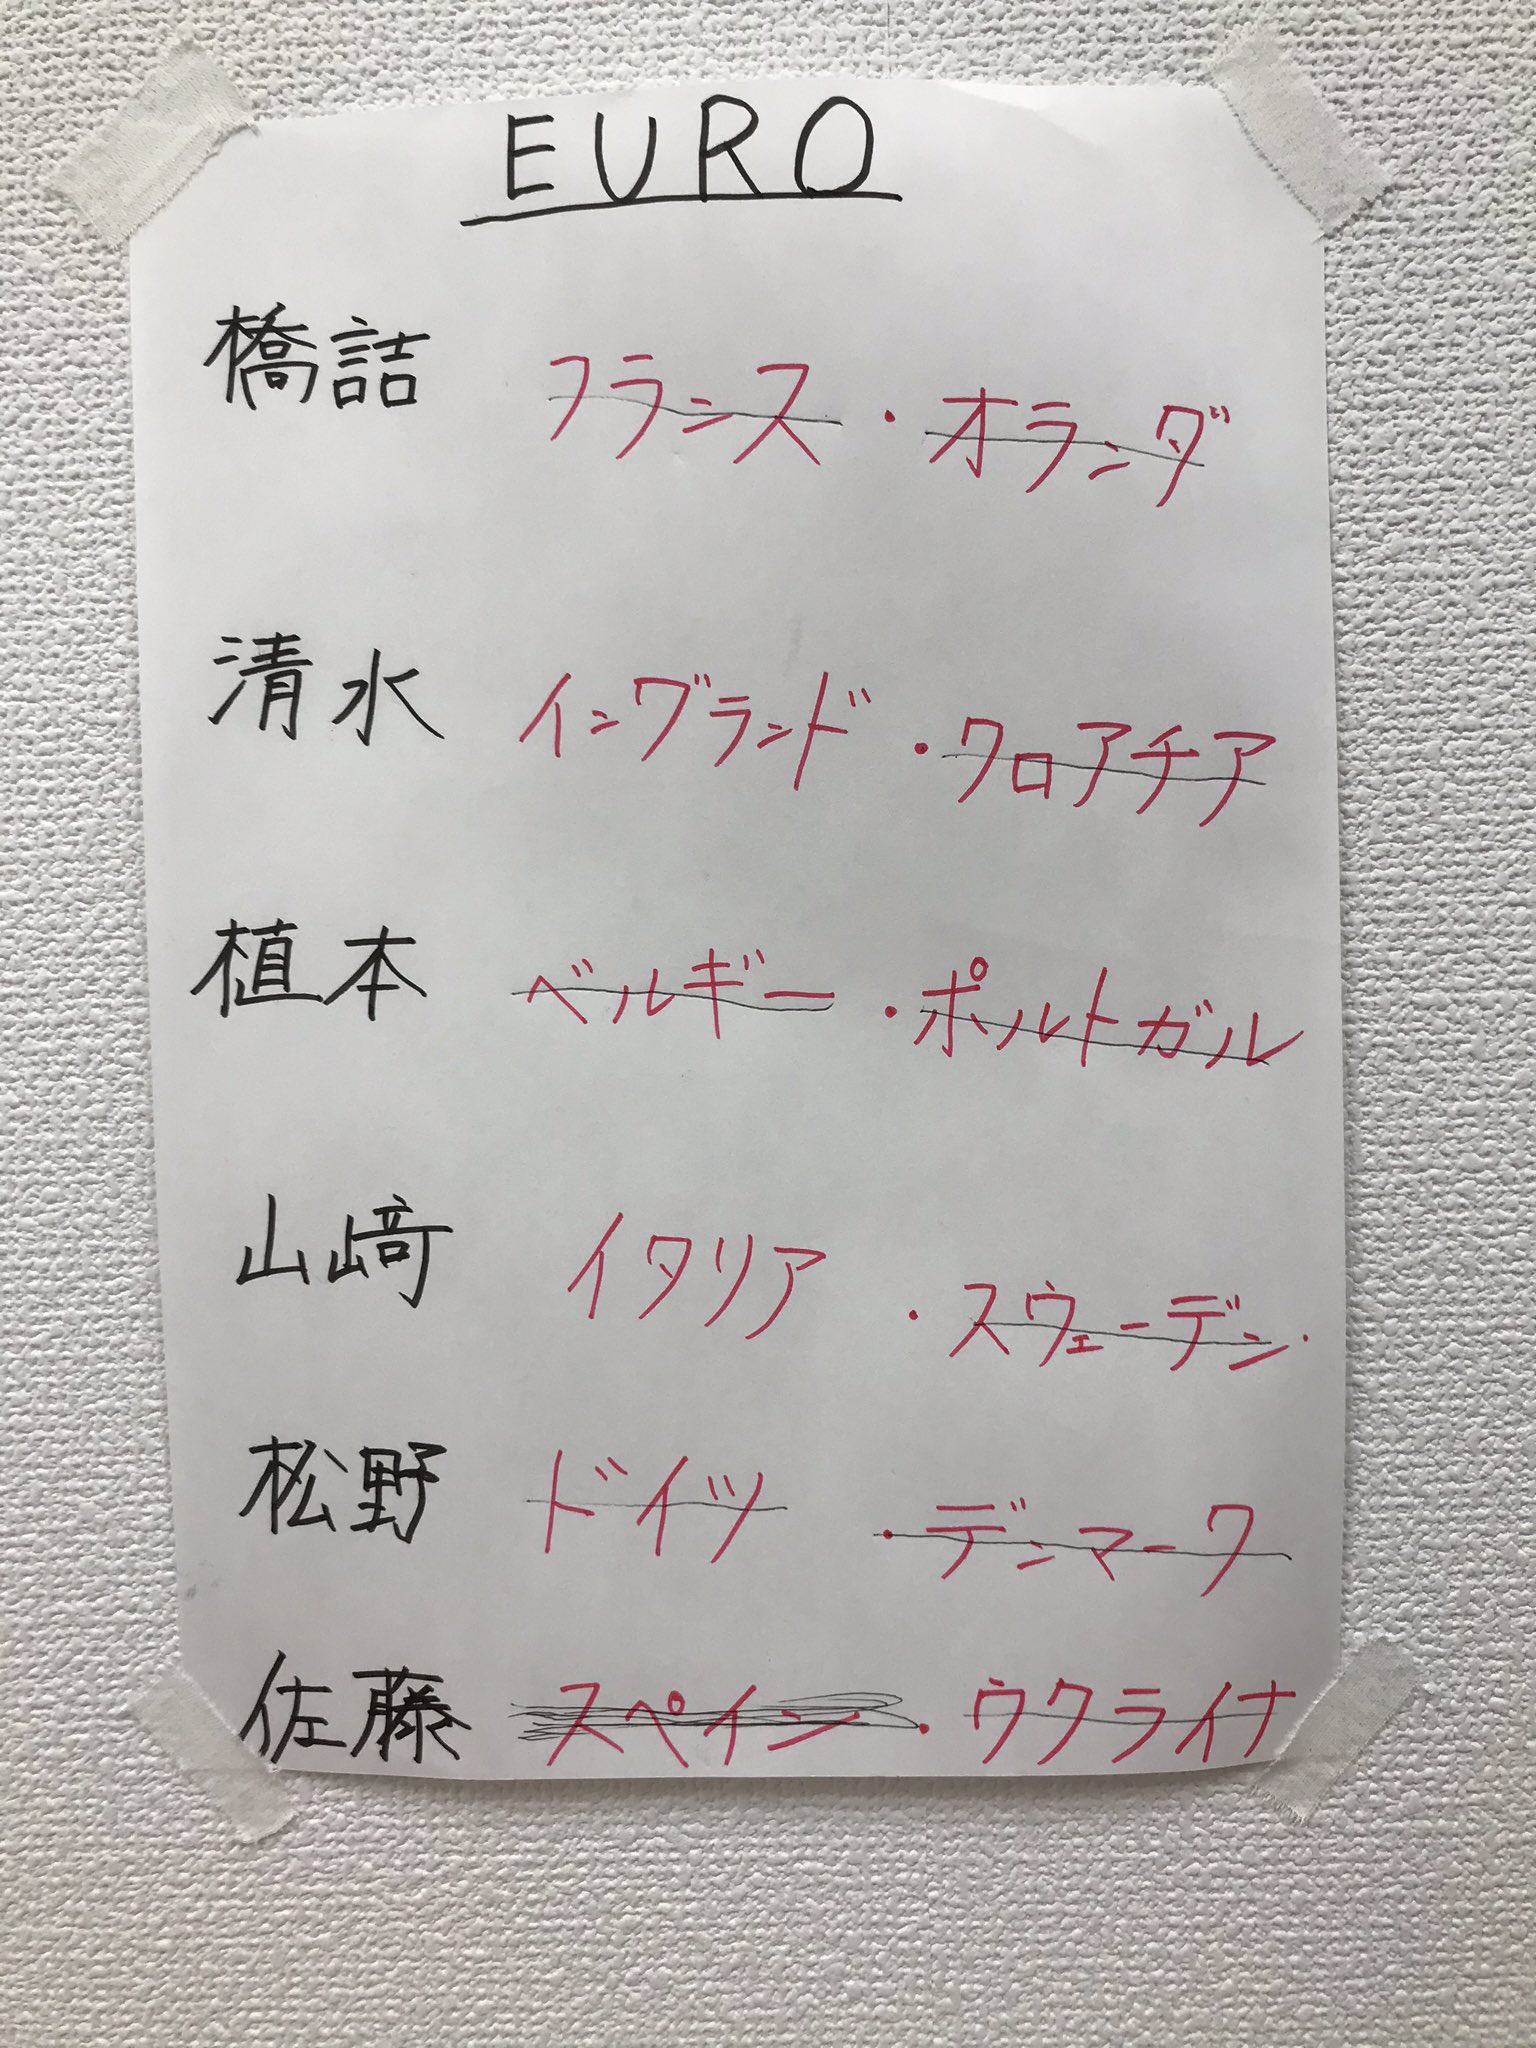 EURO
橋詰 フランス・オランダ
清水 イングランド・クロアチア
植本 ベルギー・ポルトガル
山﨑 イタリア・スウェーデン・
松野 ドイツ・デンマーク
佐藤 スペイン・ウクライナ